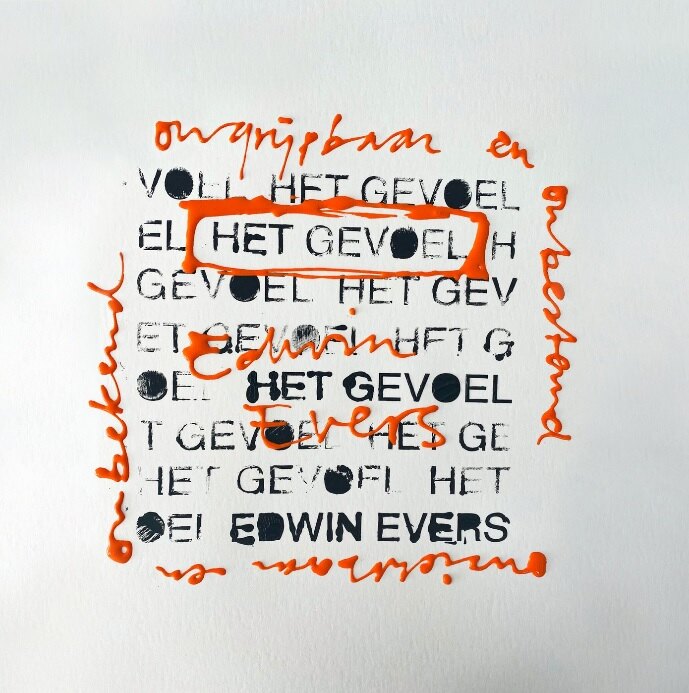 ongrijpbaar en
VOEL HET GEVOEL
EL HET GEVOEL H
GEVOEL HET GEV
ET GEVOEL HET G
Edwin
OEL HET GEVOEL
Evers
T GEVOEL HET GE
HET GEVOEL HET
OEL EDWIN EVERS
en
onbekend